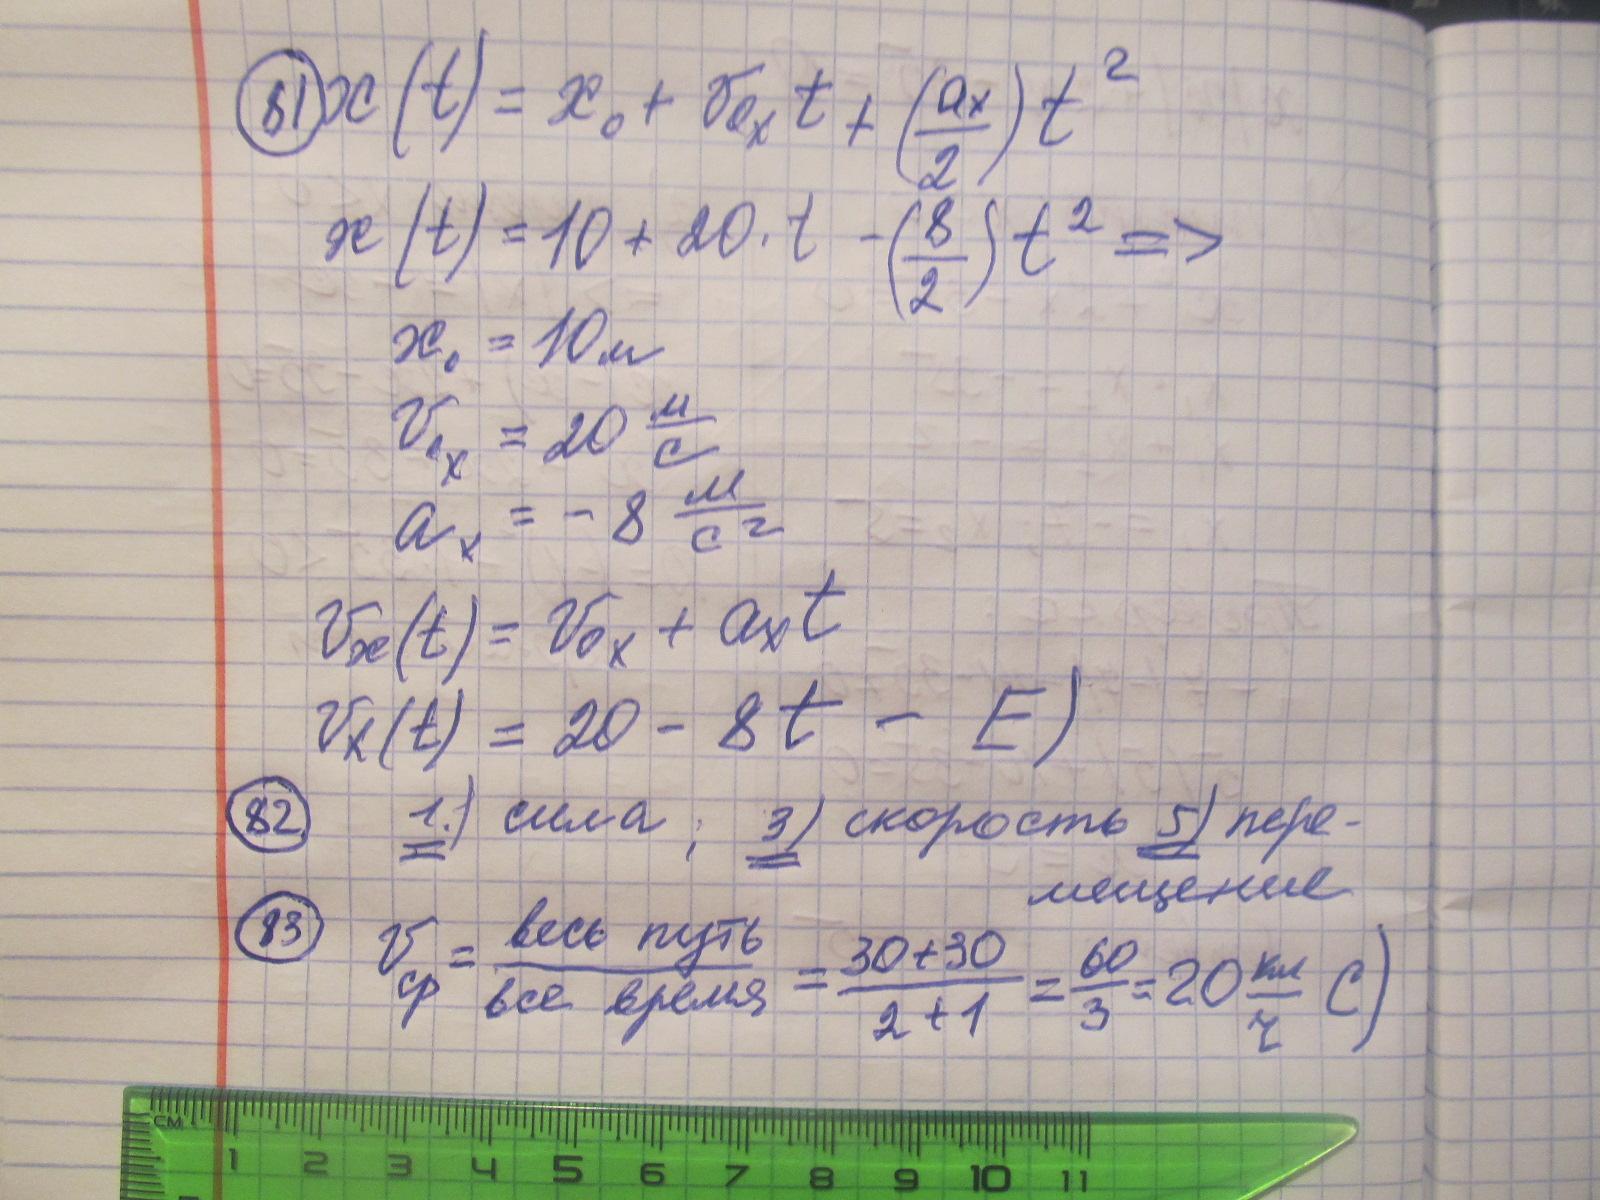 81 x(t) = x₀ + v₀ₓ t + (aₓ/2) t²
x(t) = 10 + 20·t - (8/2) t² =>
x₀ = 10 м
v₀ₓ = 20 м/с
aₓ = -8 м/с²
vₓ(t) = v₀ₓ + aₓt
vₓ(t) = 20 - 8t - E)
82 1.) сила; 3) скорость 5) пере-
мещение
83 vср = весь путь/все время = 30+30/2+1 = 60/3 = 20 км/ч C)
СМ 1 2 3 4 5 6 7 8 9 10 11